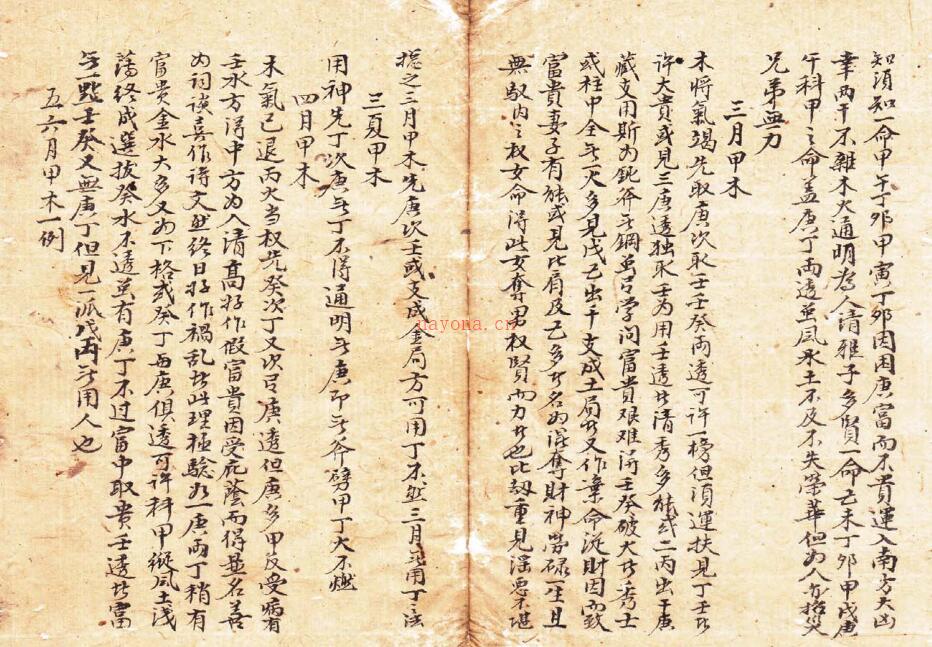 知須知一命甲午丁卯甲寅丁卯因困庚富而不貴運入南方大凶
幸兩干不雜木火通明為人清雅子多賢一命己未丁卯甲戌庚
午科甲之命盖庚丁兩透虽風水土不及不失榮華但為人亦招災
兄弟無力
三月甲木
木將氣竭先取庚次取壬壬癸兩透可許一榜但須運扶見丁壬者
許大貴或見三庚透独取壬為用壬透者清秀多能或二丙出干庚
藏支用斯為鈍斧无鋼虽學問富貴艱难得壬癸破火者秀士
或柱中全无火多見戊己出干支成土局者又作棄命從財因而致
富貴妻子有能或見比肩及己多者名為混奪財神勞碌一生且
無馭内之权女命得此女奪男权賢而力者也比劫重見淫悪不堪
捴之三月甲木先庚次壬或支成金局方可用丁不然三月无用丁之法
三夏甲木
用神先丁次庚无丁不得通明无庚即无斧劈甲丁火不燃
四月甲木
木氣已退丙火当权先癸次丁又次庚透但庚多甲反受病有
壬水方得中方為入清髙好作假富貴因受庇蔭而得显名善
為詞讼喜作诗文然終日好作禍乱者此理極驗也一庚兩丁稍有
富貴金水太多又為下格或癸丁與庚俱透可許科甲縱風土浅
薄終成選拔癸水不透虽有庚丁不过富中取貴壬透者富
无一點壬癸又無庚丁但見一派戊丙无用人也
五六月甲木一例
nayona.cn